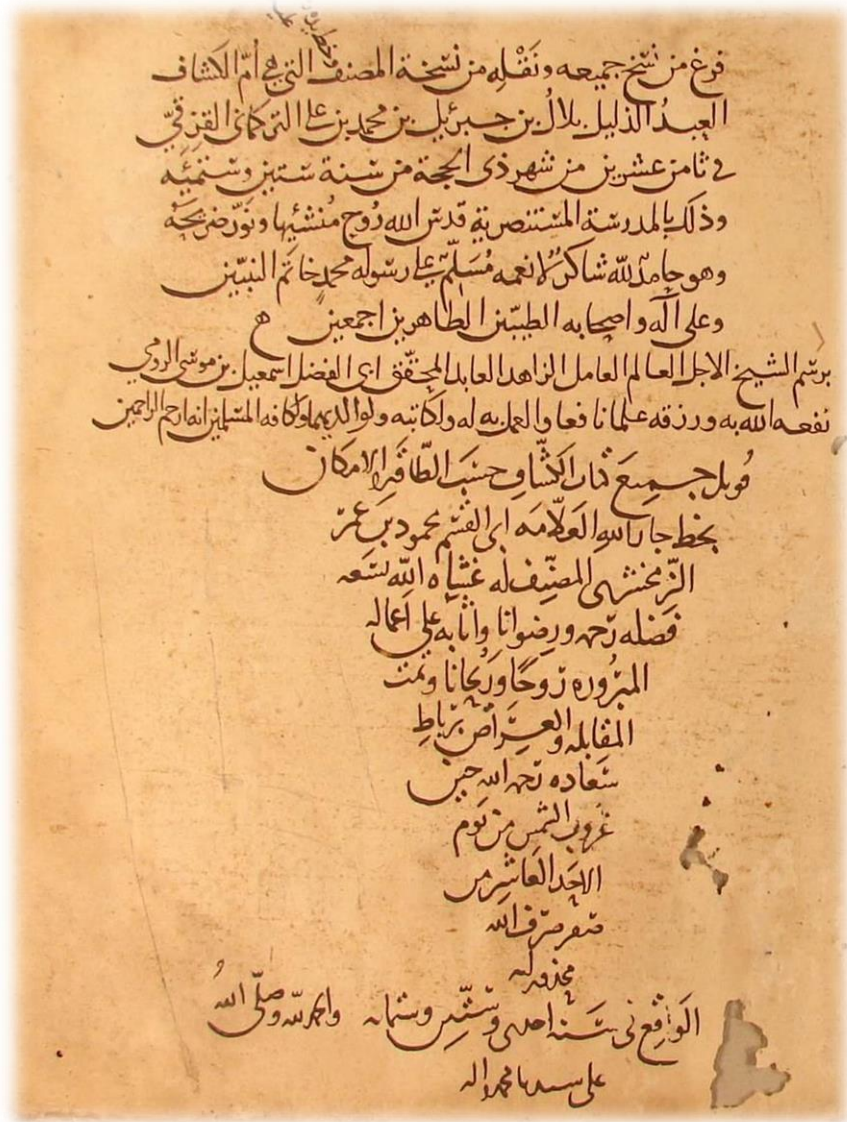 فرغ من نسخ جميعه ونقله من نسخة المصنف التي هي أم الكشاف
العبدُ الذليل بلالُ بن جبرئيل بن محمد بن علي التركماني القزقي
في ثامن عشرين من شهر ذى الحجة من سنة ستين وستمئه
وذلك بالمدرسة المستنصرية قدس الله روح مُنشئيها ونوّر ضريحَه
وهو حامدٌ لله شاكرٌ لانعمه مُسَلّم على رسوله محمدٍ خاتم النبيّين
وعلى آله واصحابه الطيبين الطاهرين اجمعين ه
برسم الشيخ الاجل العالم العامل الزاهد العابد المحقّق ابى الفضل اسمعيل بن موسى الرومي
نفعه الله به ورزقه علما نافعا والعمل به له ولكاتبه ولوالديهما ولكافه المسلمين انه ارحم الراحمين
قُوبل جميعَ كتاب الكشّافِ حسَبَ الطّاقه والامكان
بخط جار اللهِ العلّامه ابى القسم محمود بن عمر
الزّمخشرى المصنِّف له غشّاه الله بسَعه
فضله رحمه ورضوانا واثابه على اعماله
المبرُوره رَوحًا وريحانا وتمت
المقابله والعِراض برباطِ
سَعاده رحمه الله حين
غروب الشمس من يَوم
الاحد العَاشر من
صفر صرف الله
محذوره
الوَاقِع فى سَنه احدى وستّين وستمايه والحمد لله وصلّى اللهُ
على سيدنا محمد واله